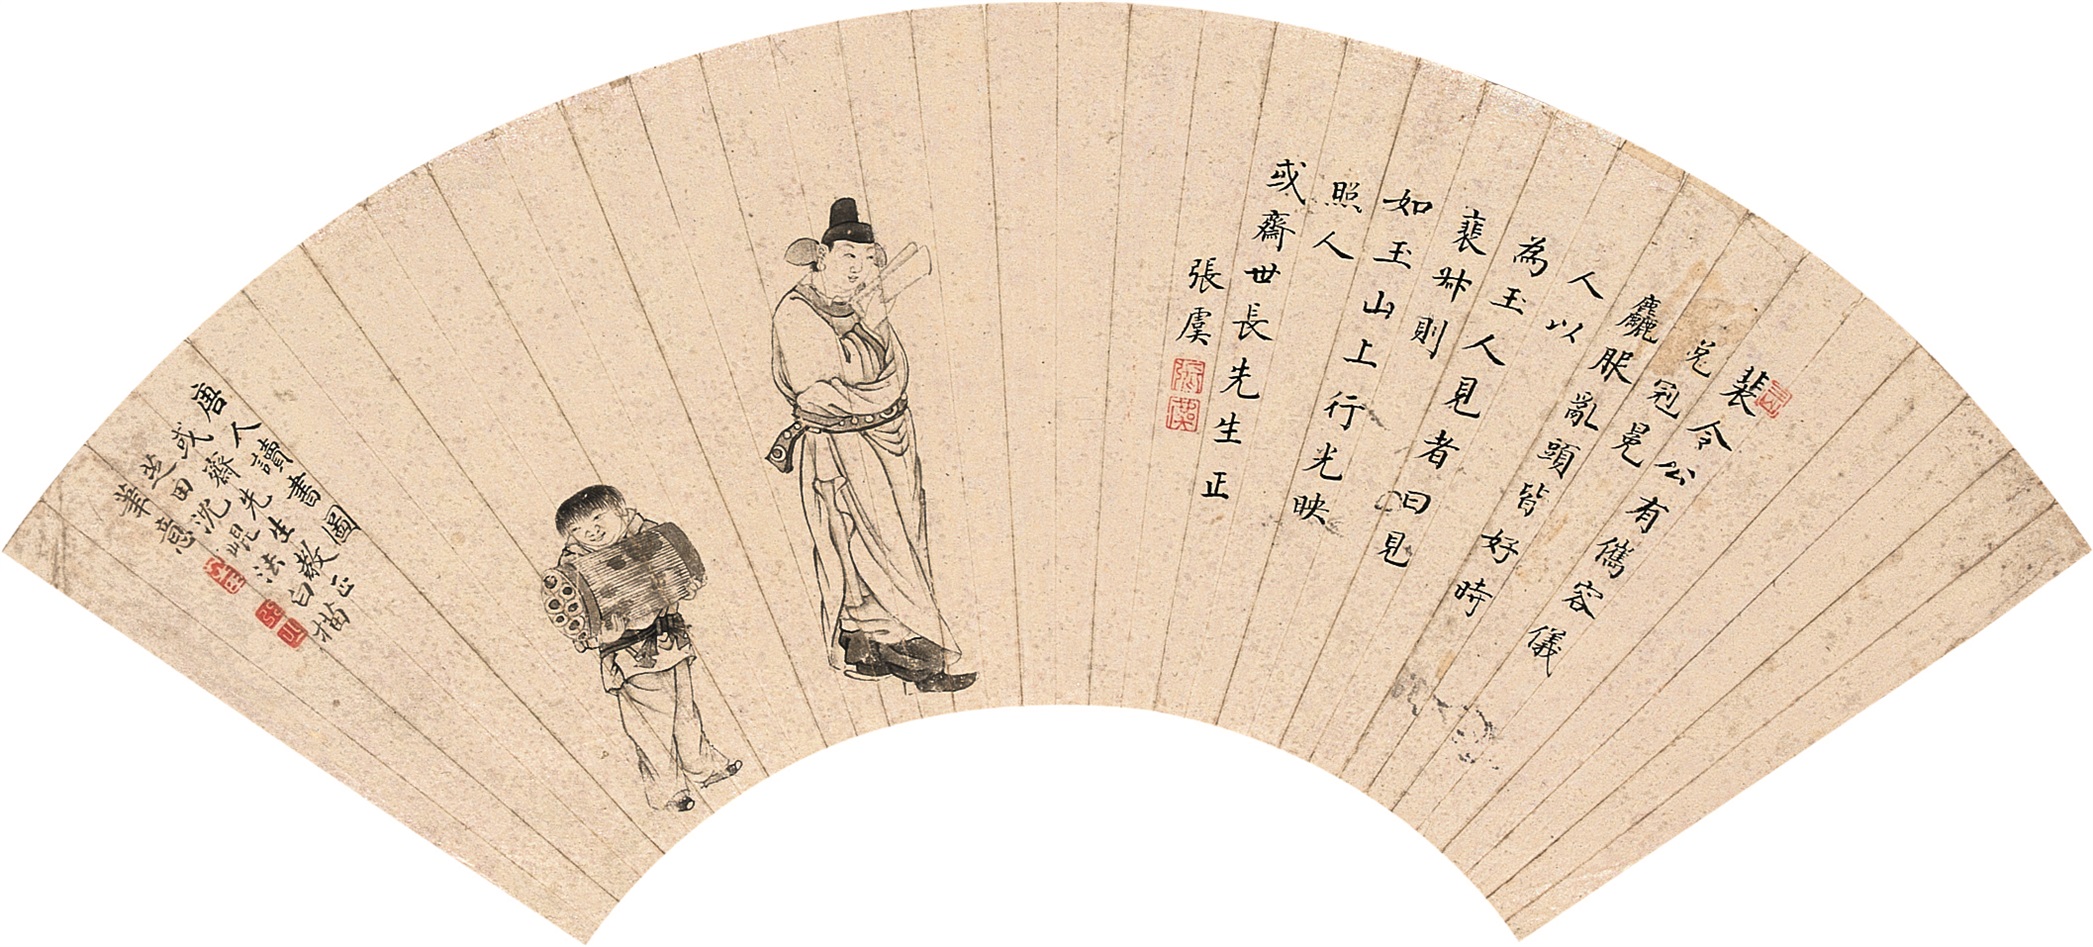 裴令公有儁容儀
兌冠冕
麤服亂頭皆好時
人以
為玉人見者曰見
裴叔則
如玉山上行光映
照人
或齋世長先生正
張虞
唐人讀書圖
或齋先生教正
芝田沈崐法白描
筆意